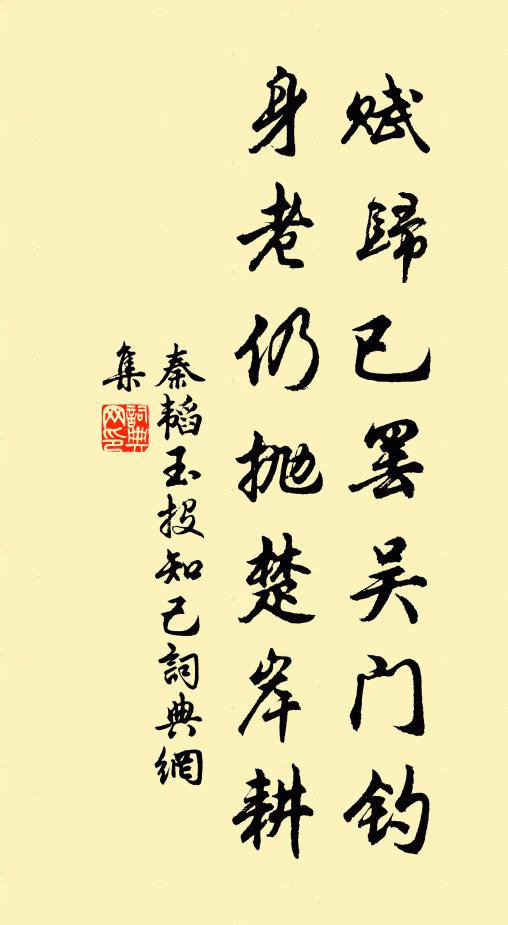 赋歸已罢吴门钓
身老仍抛楚岸耕
秦韬玉投知己詞典網
集
詞典网印